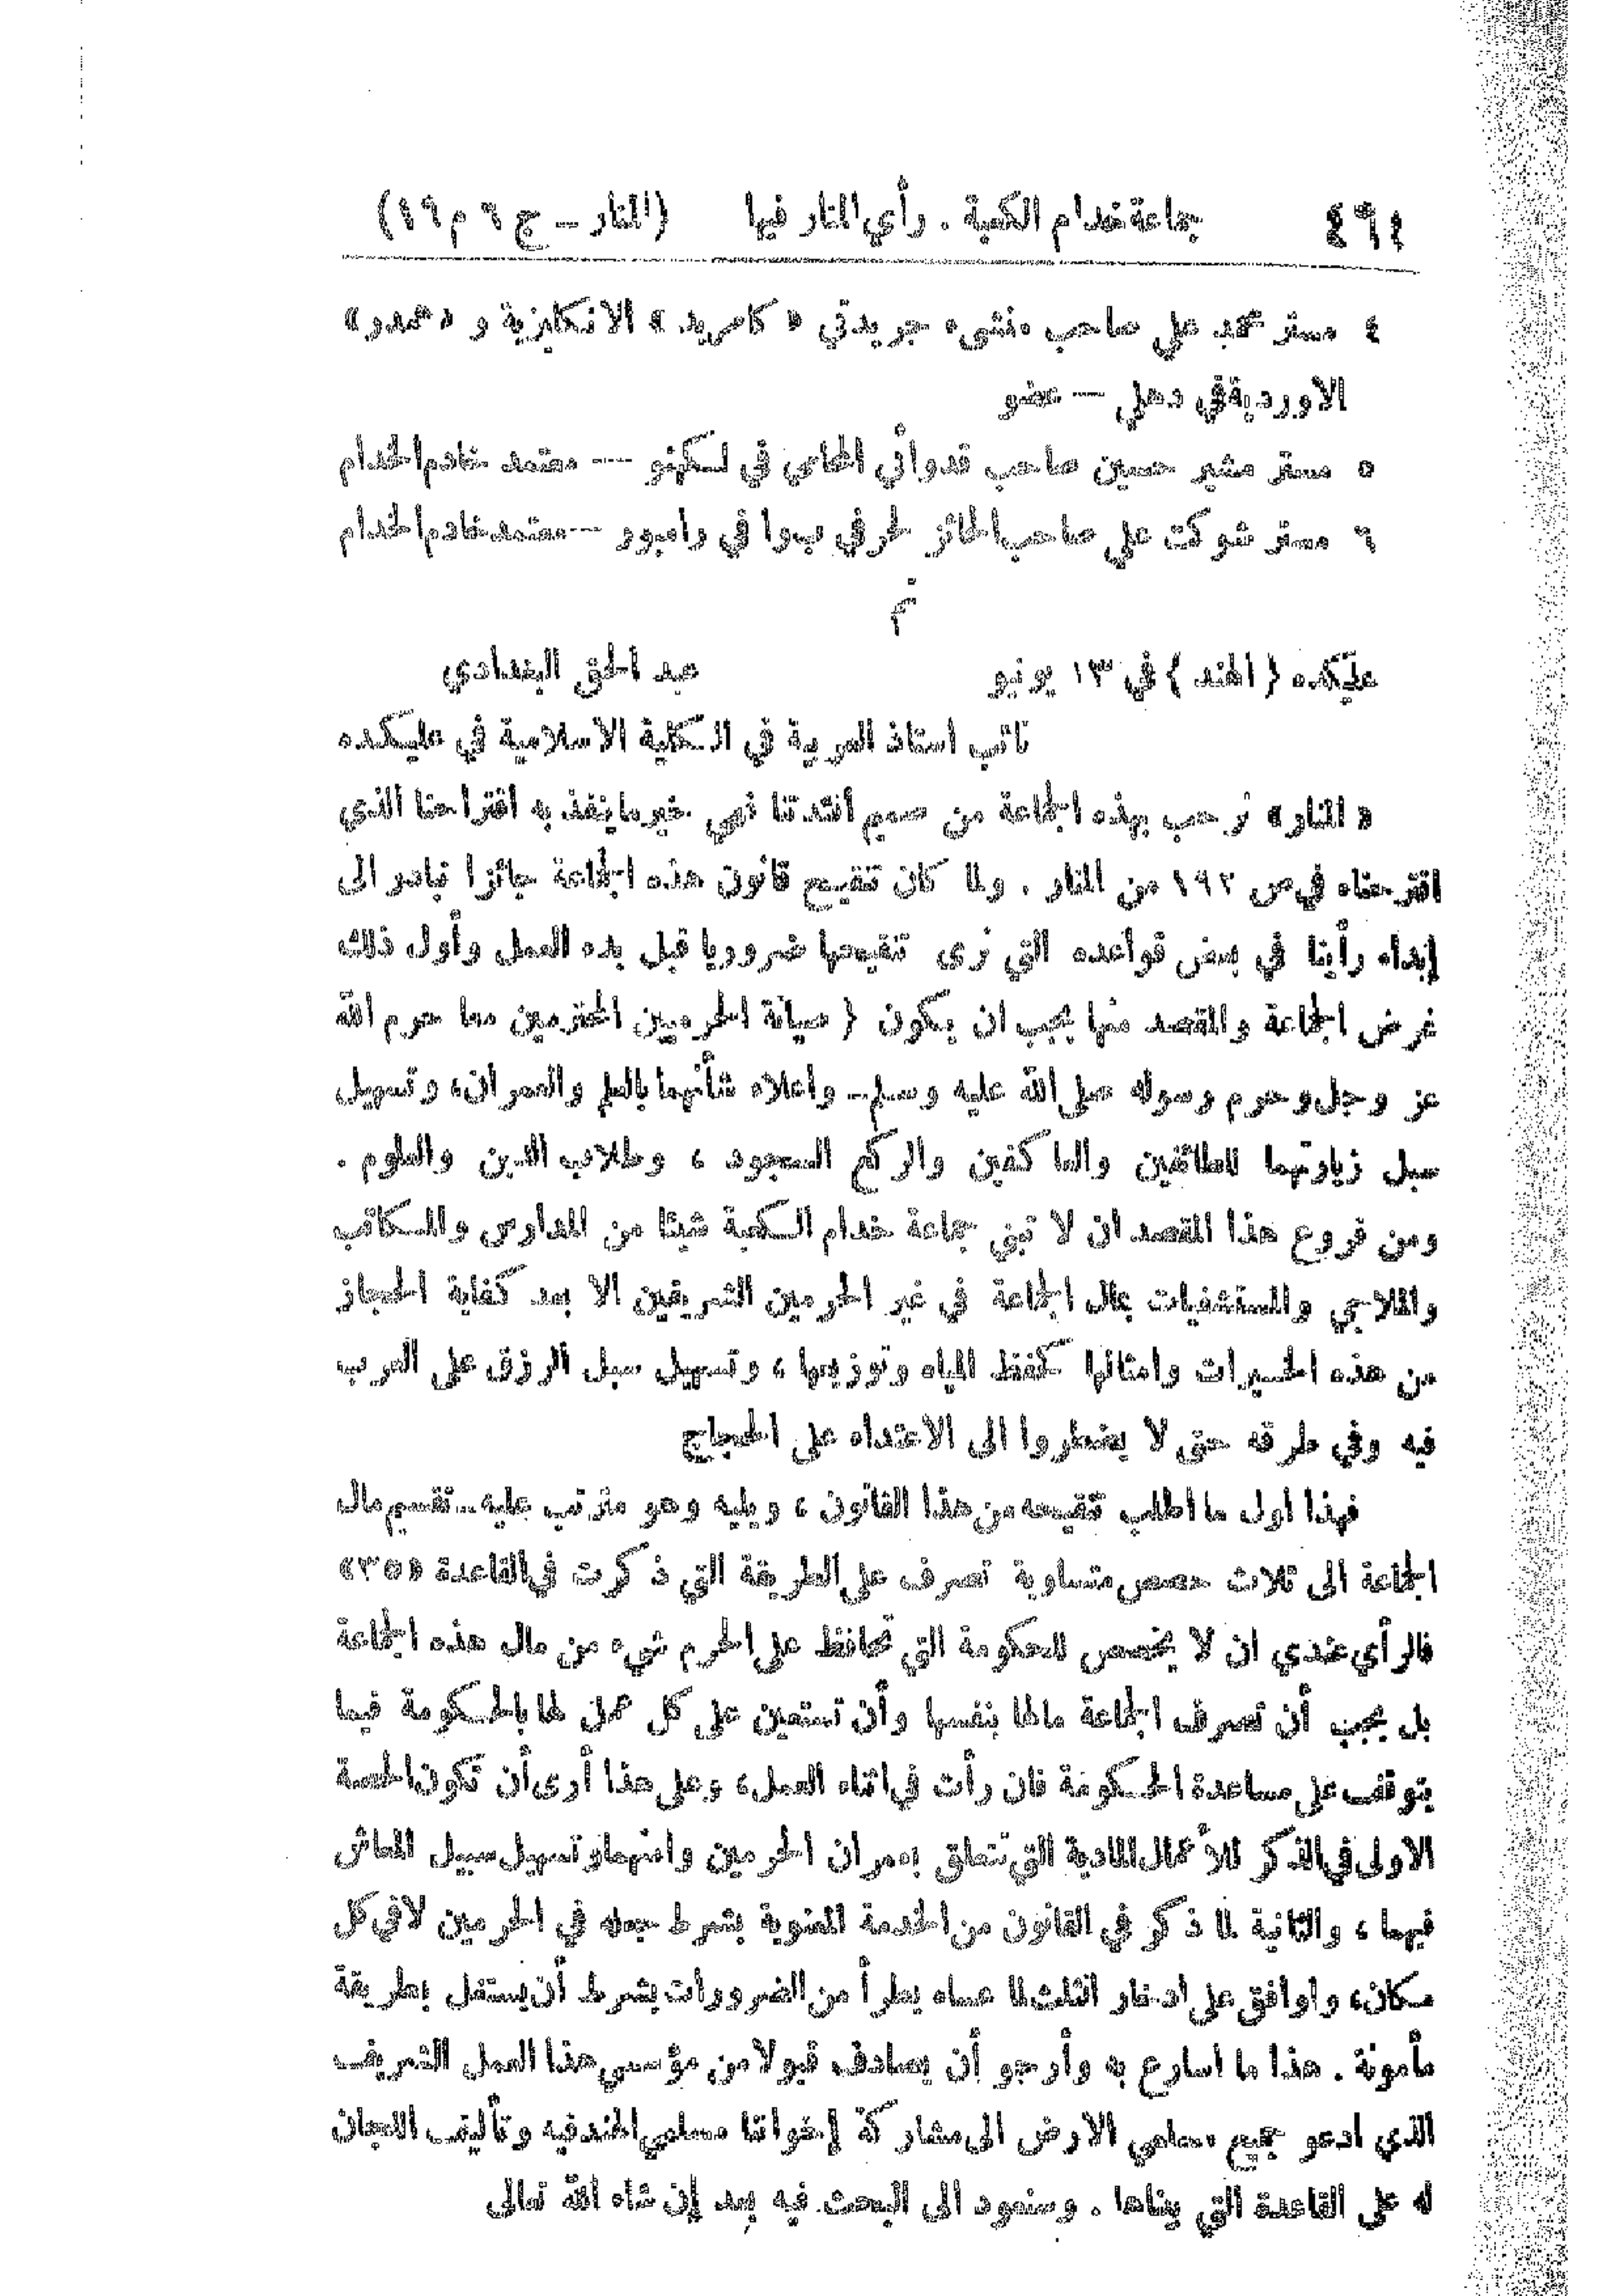 ٤٦٤ جماعة خدام الكعبة . رأي المنار فيها (المنار – ج ٦ م ١٩)
٤ مستر محمد علي صاحب منشيء جريدتي « كامريد » الانكليزية و « همدو»
الاوردية في دهلي — عضو
٥ مستر مشير حسين صاحب قدوائي المحامي في لكهنو — معتمد خادم الخدام
٦ مستر شوكت علي صاحب الحائز لحرفي ب وا في رامبور — معتمد خادم الخدام
عليكده ( الهند ) في ١٣ يونيو عبد الحق البغدادي
نائب استاذ العربية في الكلية الاسلامية في عليكده
« المنار» نرحب بهذه الجماعة من صميم أفئدتنا فهي خير ما ينفذ به اقتراحنا الذي
اقترحناه في ص ١٩٢ من المنار . ولما كان تنقيح قانون هذه الجماعة جائزا نبادر الى
إبداء رأينا في بعض قواعده التي نرى تنقيحها ضروريا قبل بدء العمل وأول ذلك
غرض الجماعة والمقصد منها يجب ان يكون ( صيانة الحرمين المحترمين مما حرم الله
عز وجل وحرم رسوله صلى الله عليه وسلم – واعلاء شأنهما بالعلم والعمران، وتسهيل
سبل زيارتهما للطائفين والعاكفين والركع السجود ، وطلاب الدين والعلوم .
ومن فروع هذا المقصد ان لا تبني جماعة خدام الكعبة شيئا من المدارس والمكاتب
والملاجي والمستشفيات بمال الجماعة في غير الحرمين الشريفين الا بعد كفاية الحجاز
من هذه الخيرات وامثالها كحفظ المياه وتوزيعها ، وتسهيل سبل الرزق على العرب
فيه وفي طرقه حتى لا يضطروا الى الاعتداء على الحجاج
فهذا أول ما اطلب تنقيحه من هذا القانون ، ويليه وهو مترتب عليه – تقسيم مال
الجماعة الى ثلاث حصص متساوية تصرف على الطريقة التي ذكرت في القاعدة «٣٥»
فالرأي عندي ان لا يخصص للحكومة التي تحافظ على الحرم شيء من مال هذه الجماعة
بل يجب أن تصرف الجماعة مالها بنفسها وأن تستعين على كل عمل لها بالحكومة فيما
يتوقف على مساعدة الحكومة فان رأت في اثناء العمل، وعلى هذا أرى أن تكون الحصة
الاولى في الذكر للأعمال المادية التي تتعلق بعمران الحرمين وامنهما وتسهيل سبيل المعاش
فيهما ، والثانية لما ذكر في القانون من الخدمة المعنوية بشرط جعله في الحرمين لا في كل
مكان، واوافق على ادخار الثلث لما عساه يطرأ من الضرورات بشرط أن يستغل بطريقة
مأمونة . هذا ما اسارع به وأرجو أن يصادف قبولا من مؤسسي هذا العمل الشريف
الذي ادعو جميع مسلمي الارض الى مشاركة إخواننا مسلمي الهند فيه وتأليف اللجان
له على القاعدة التي بيناها . وسنعود الى البحث فيه بعد إن شاء الله تعالى